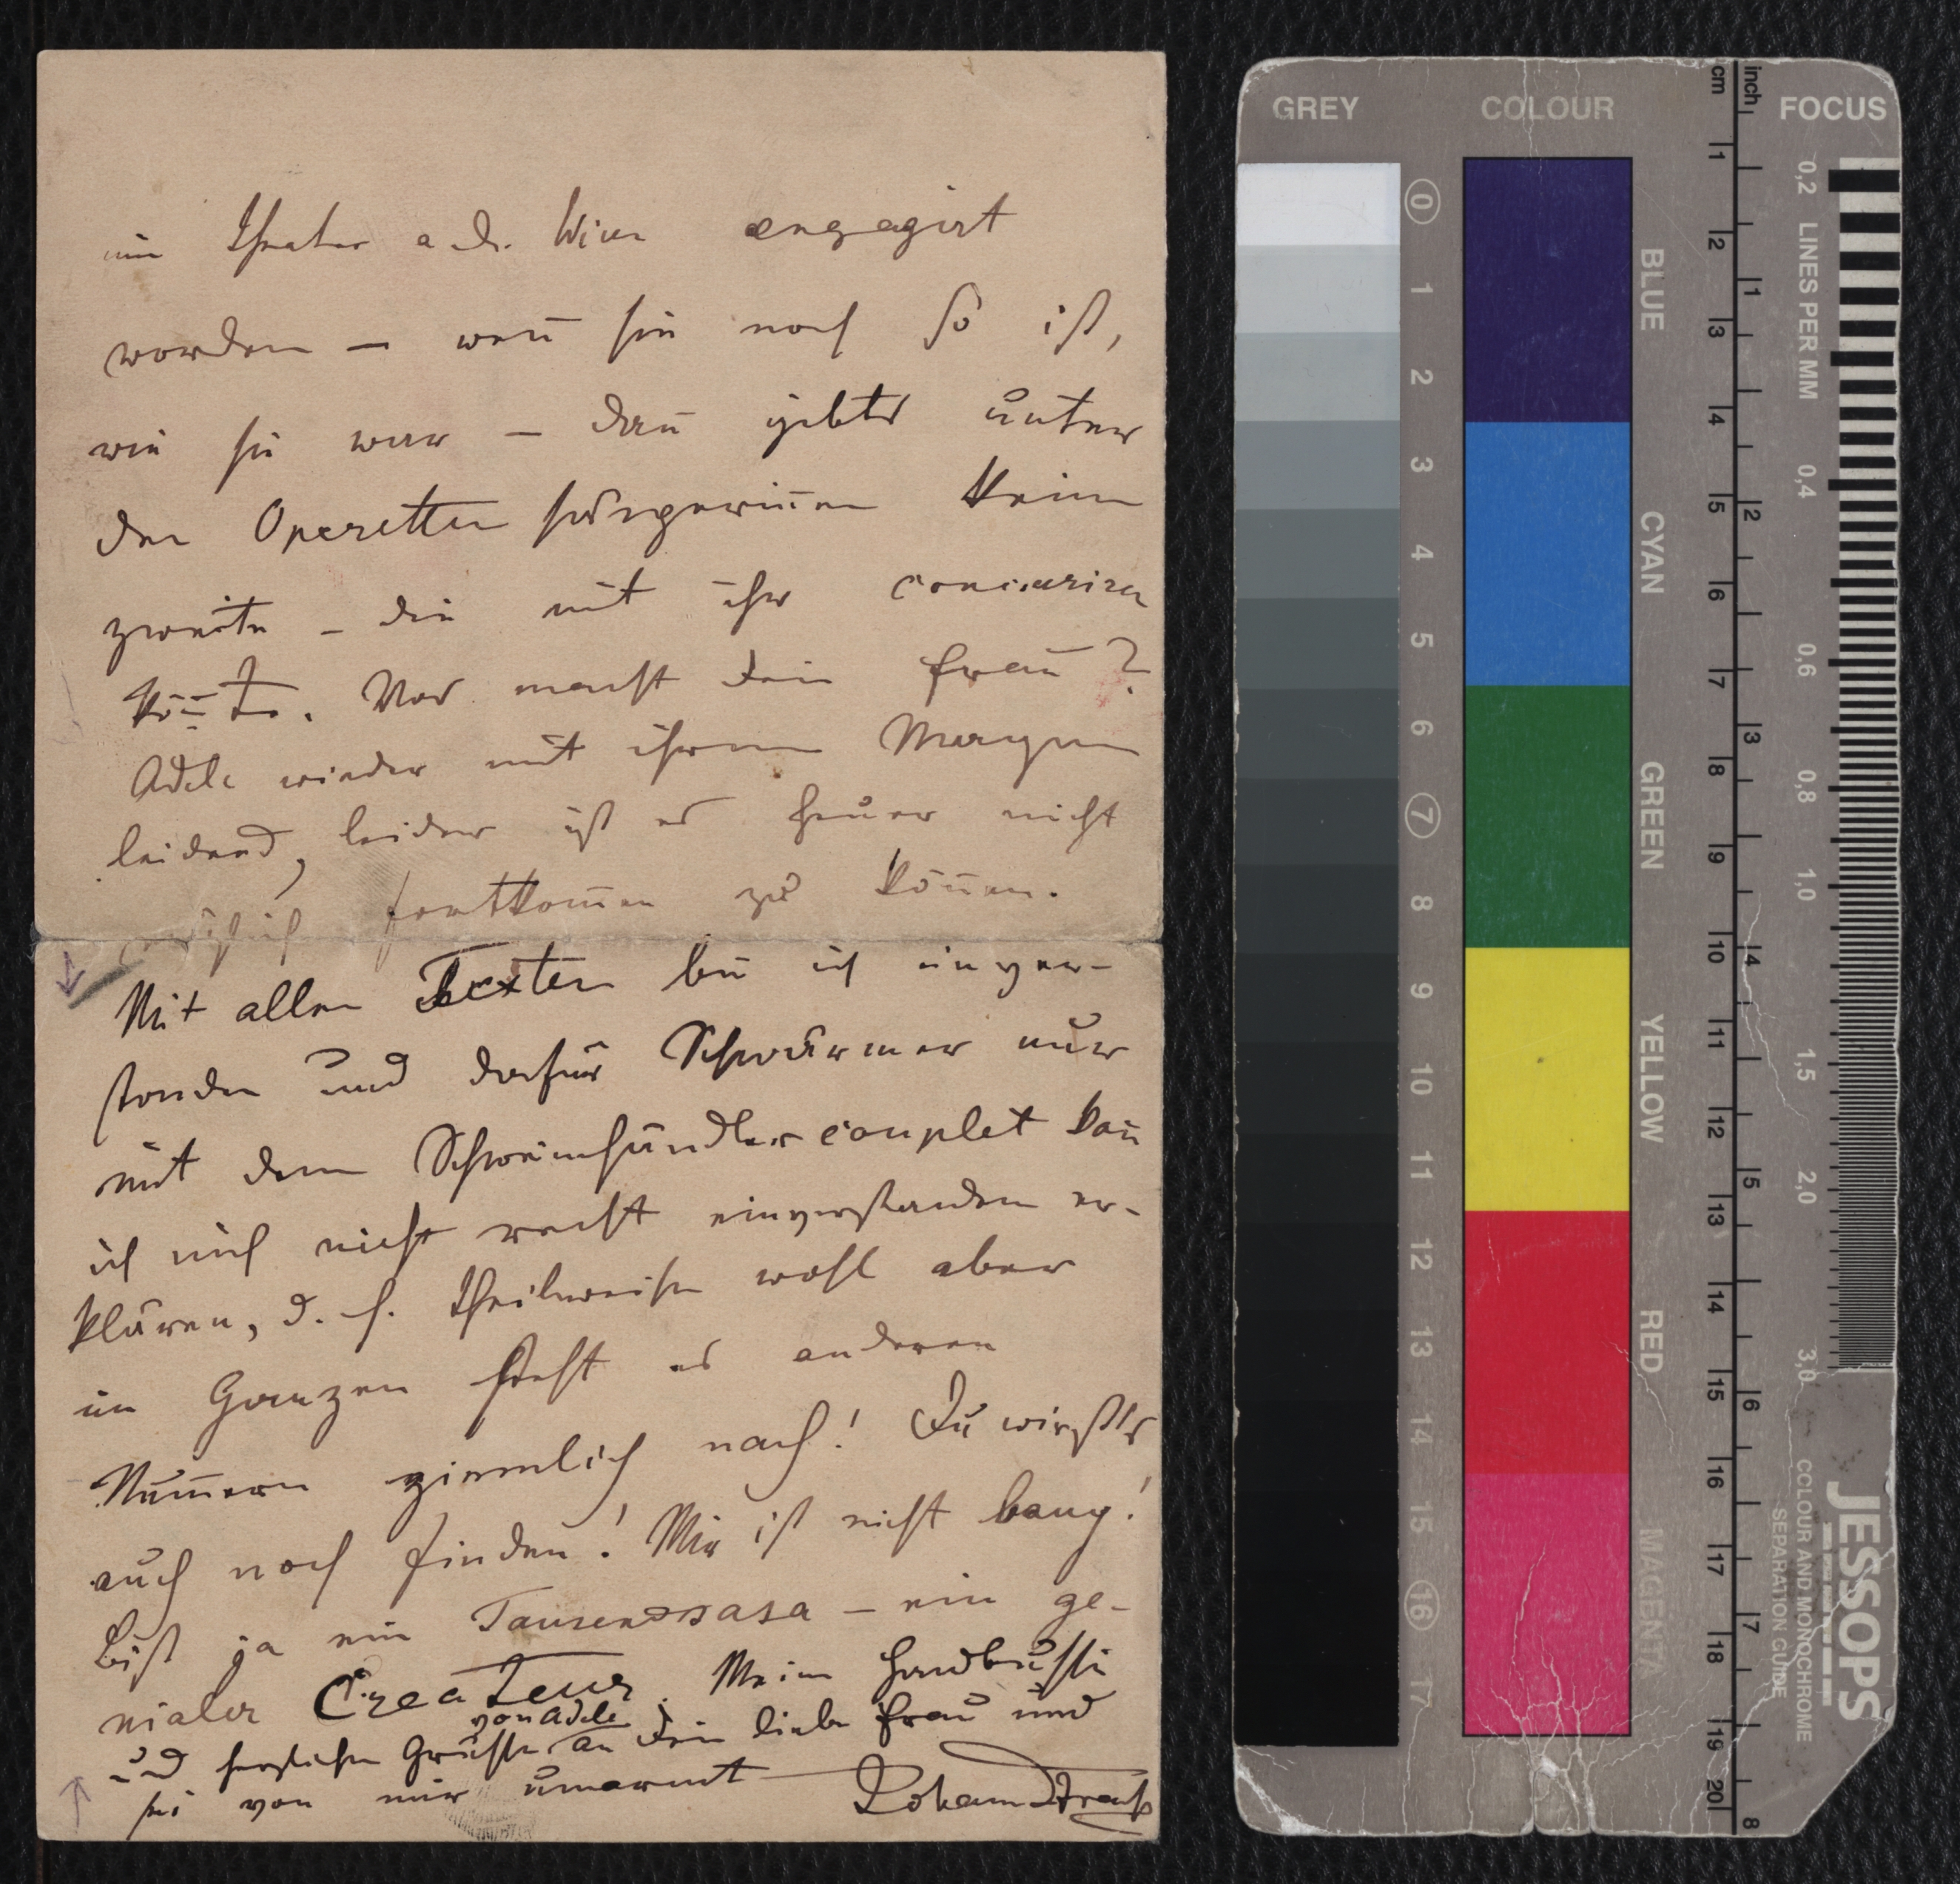 im Theater a. d. Wien engagirt
worden – weñ sie noch so ist,
wie sie war – dañ gibts unter
den Operettensängeriñen keine
zweite – die mit ihr concuriren
köñte. Was macht dein Frau?
Adele wieder mit ihrem Magen
leidend, leider ist es heuer nicht
möglich fortkom̄en zu köñen.
Mit allen Texten bin ich einver-
standen und dafür Schwärmer nur
mit dem Schweinehändlercouplet kañ
ich mich nicht recht einverstanden er-
klären, d. h. theilweise wohl aber
im Ganzen steht es anderen
Num̄ern ziemlich nach! Du wirsts
auch noch finden! Mir ist nicht bang!
Bist ja ein Tausendsasa – ein ge-
nialer Createur. Meine Handbussi
von Adele
und herzlichen Grüsse an dein liebe Frau und
sei von mir umarmt Johann Strauß
GREY COLOUR FOCUS
cm inch
0 1 2 3 4 5 6 7 8 9 10 11 12 13 14 15 16 17
BLUE
CYAN
GREEN
YELLOW
RED
MAGENTA
1 2 3 4 5 6 7 8 9 10 11 12 13 14 15 16 17 18 19 20
1 2 3 4 5 6 7 8
0,2 LINES PER MM 0,4 0,6 0,8 1,0 1,5 2,0 3,0
JESSOPS
COLOUR AND MONOCHROME
SEPARATION GUIDE